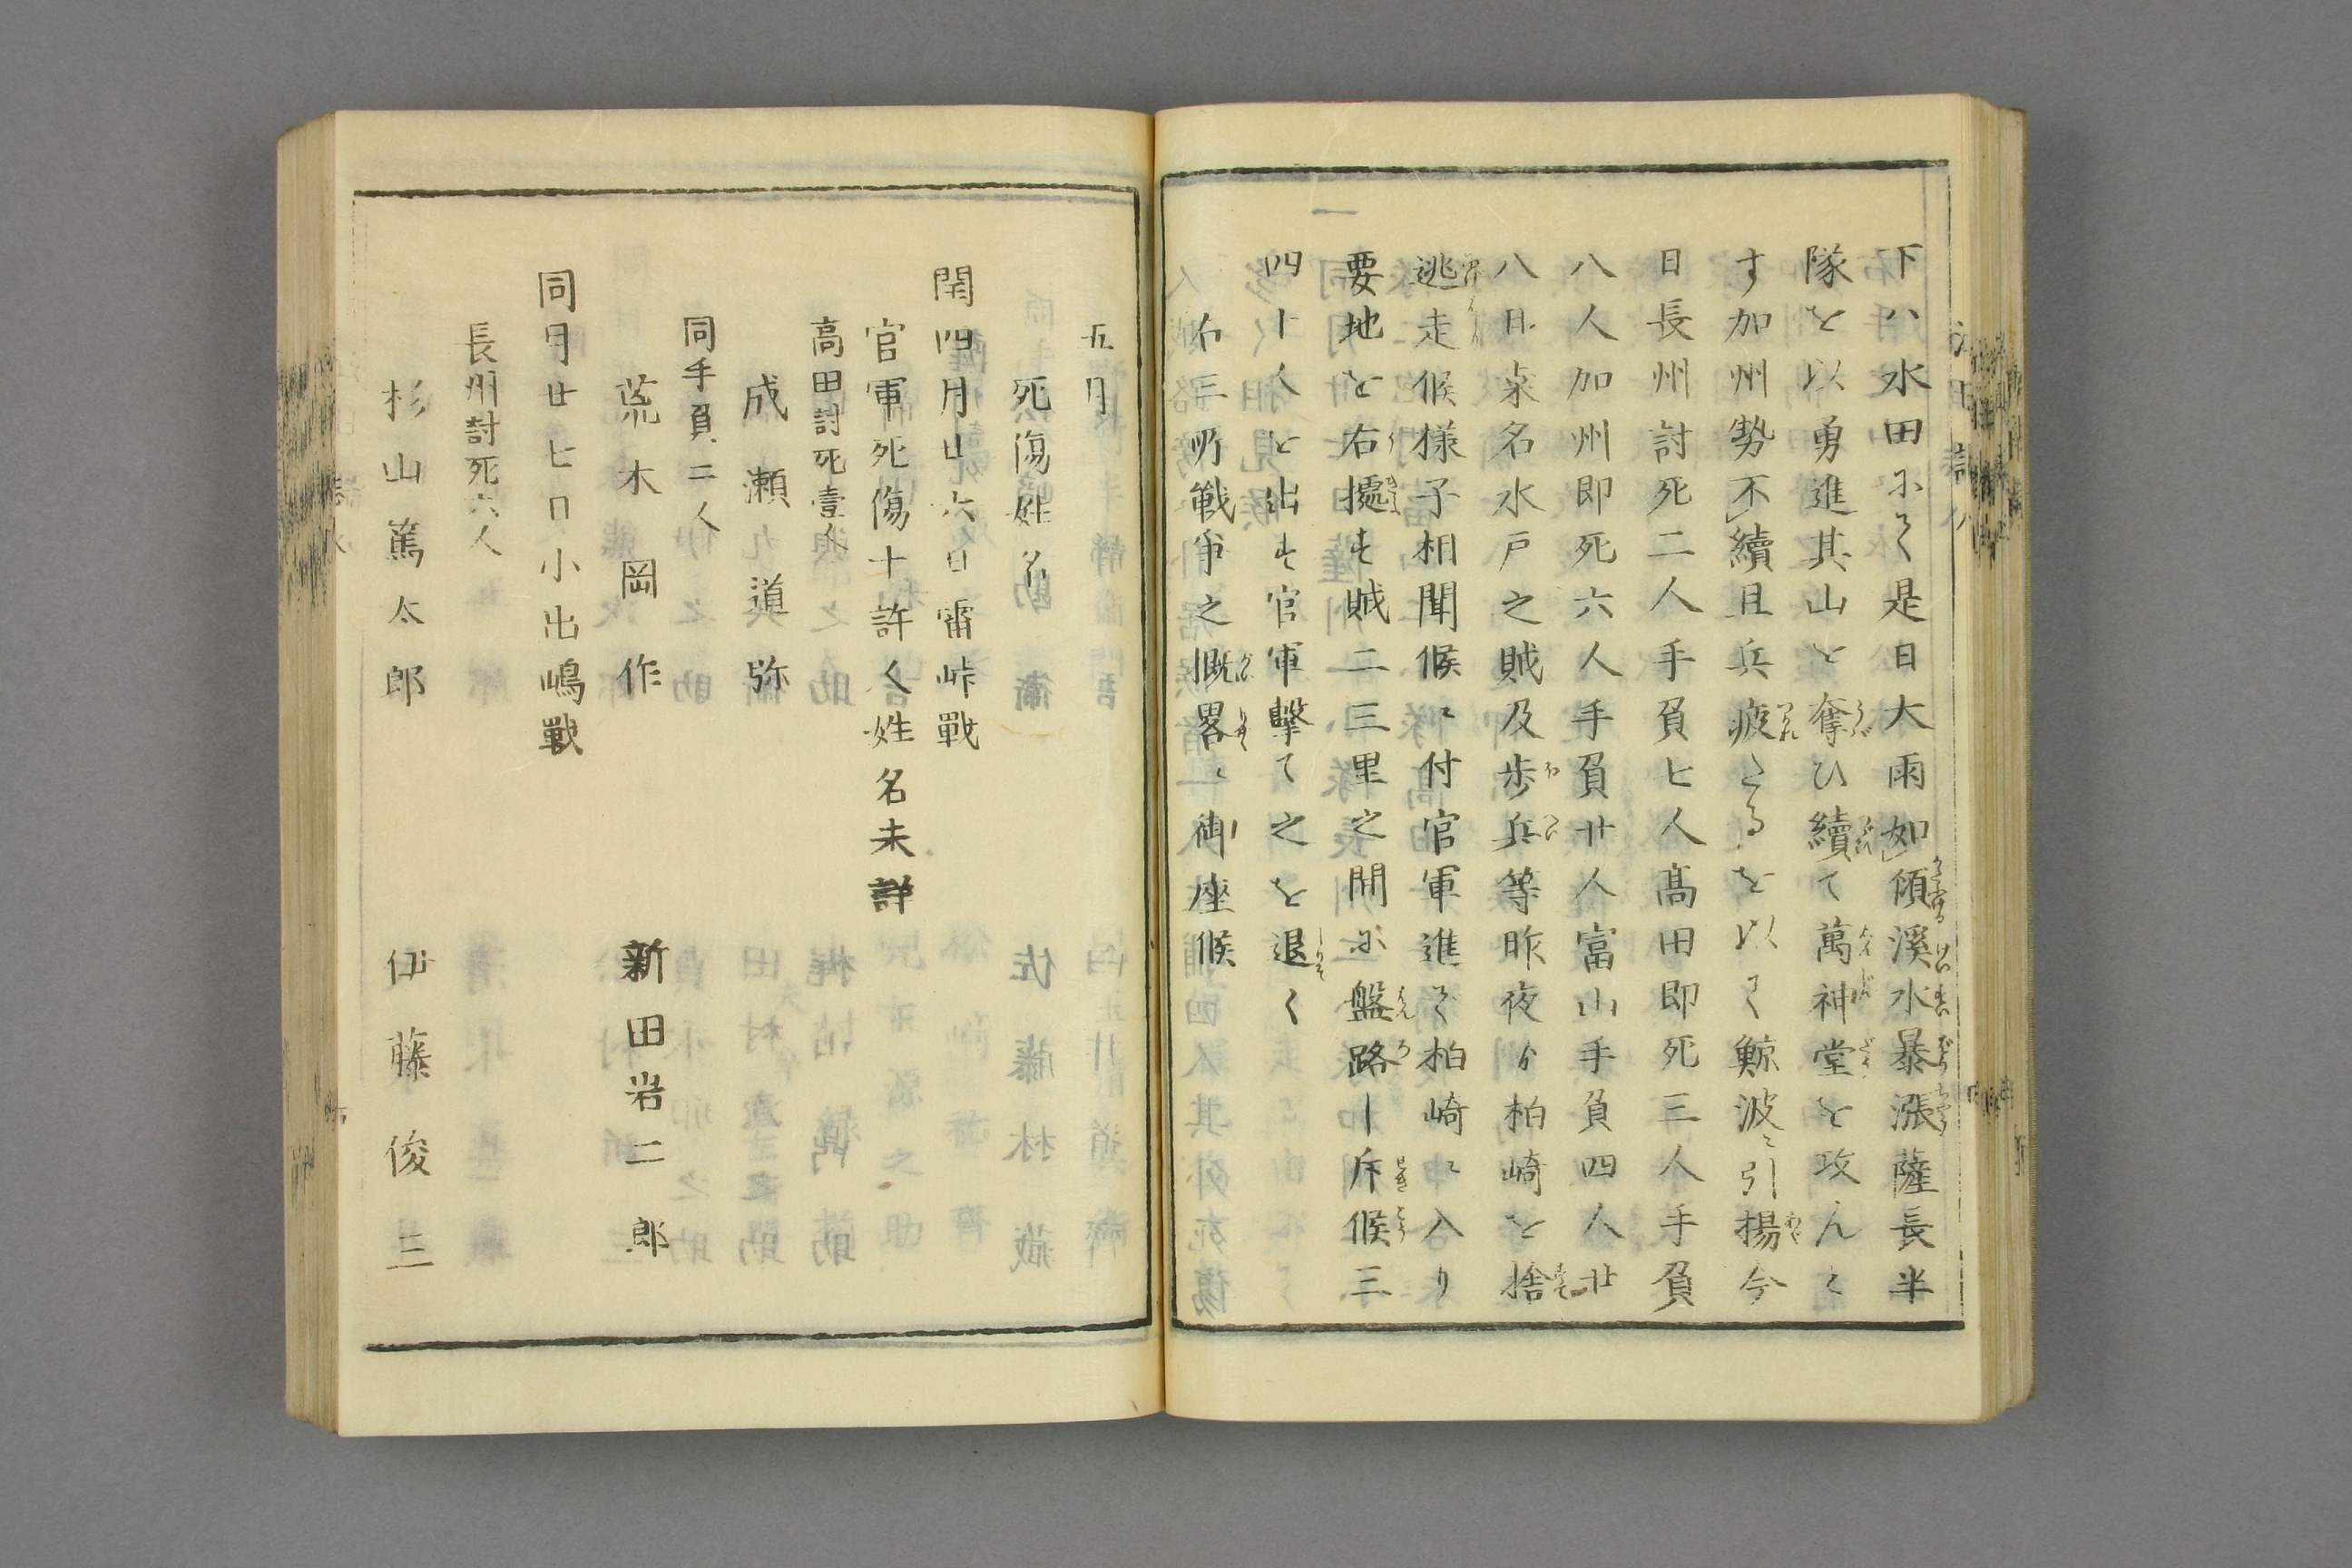 下ハ水田にて是日大雨如傾溪水暴漲薩長半
隊を以勇進其山を奪ひ續て萬神堂を攻んと
す加州勢不續且兵疲たるを以て鯨波ニ引揚今
日長州討死二人手負七人髙田即死三人手負
八人加州即死六人手負廿人富山手負四人廿
八日桒名水戸之賊及歩兵等昨夜ゟ柏崎を捨
逃走候様子相聞候ニ付官軍進て柏崎ニ入り
要地を右擾す賊二三里之間に盤路し斥候三
四十人を出す官軍撃て之を退く
右三所戦争之概畧ニ御座候
五月
死傷姓名
閏四月廿六日雷峠戰
官軍死傷十許人姓名未詳
高田討死壹人
成瀬道弥
同手負二人
荒木岡作
新田岩二郎
同月廿七日小出嶋戰
長州討死六人
杉山篤太郎
伊藤俊三